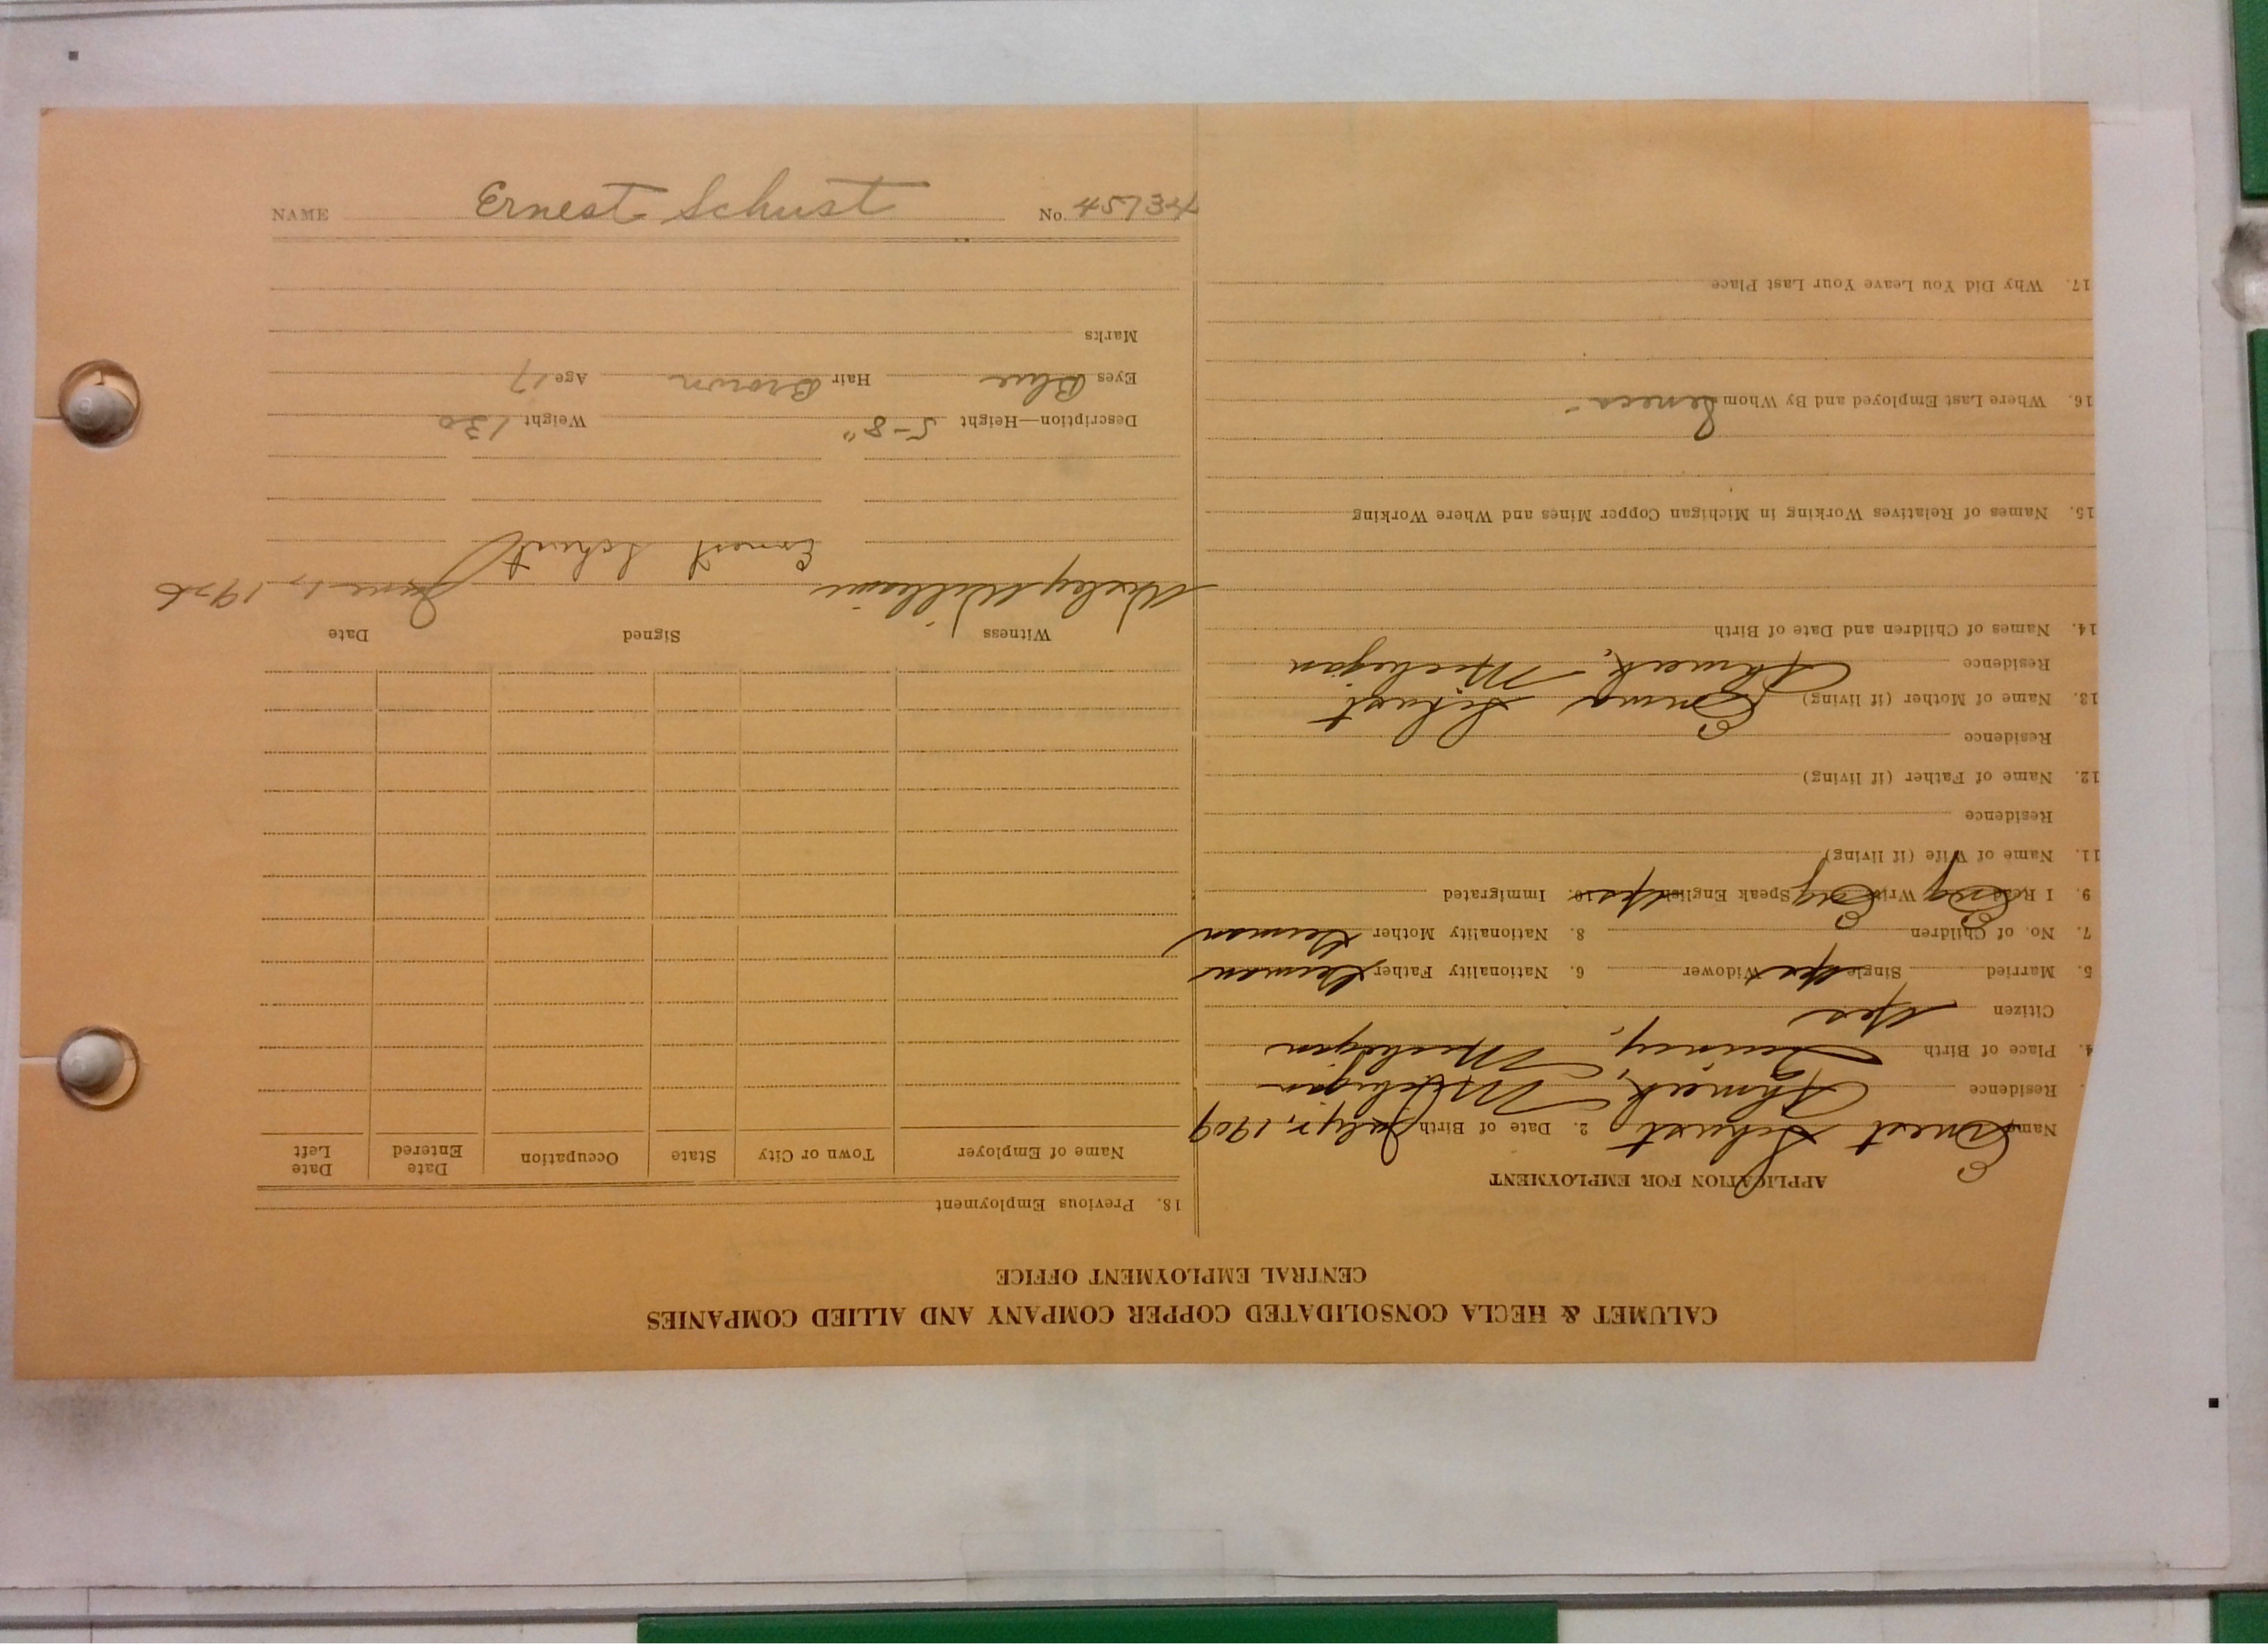 NAME Ernest Schust No. 45734
CALUMET & HECLA CONSOLIDATED COPPER COMPANY AND ALLIED COMPANIES
CENTRAL EMPLOYMENT OFFICE
APPLICATION FOR EMPLOYMENT
Name Ernest Schust 2. Date of Birth July 1909
Residence Ahmeek, Michigan
4. Place of Birth Michigan
Citizen Yes
5. Married Single Yes Widower 6. Nationality Father German
7. No. of Children 8. Nationality Mother German
9. I Read Eng Write Eng Speak English Yes 10. Immigrated
11. Name of Wife (if living)
Residence
12. Name of Father (if living)
Residence
13. Name of Mother (if living) Emma Schust
Residence Ahmeek, Michigan
14. Names of Children and Date of Birth
15. Names of Relatives Working in Michigan Copper Mines and Where Working
16. Where Last Employed and By Whom Seneca
17. Why Did You Leave Your Last Place
18. Previous Employment
Name of Employer Town or City State Occupation Date Entered Date Left
Witness Signed Date
Wesley Williams Ernest Schust June 1926
Description—Height 5-8" Weight 130
Eyes Blue Hair Brown Age 17
Marks